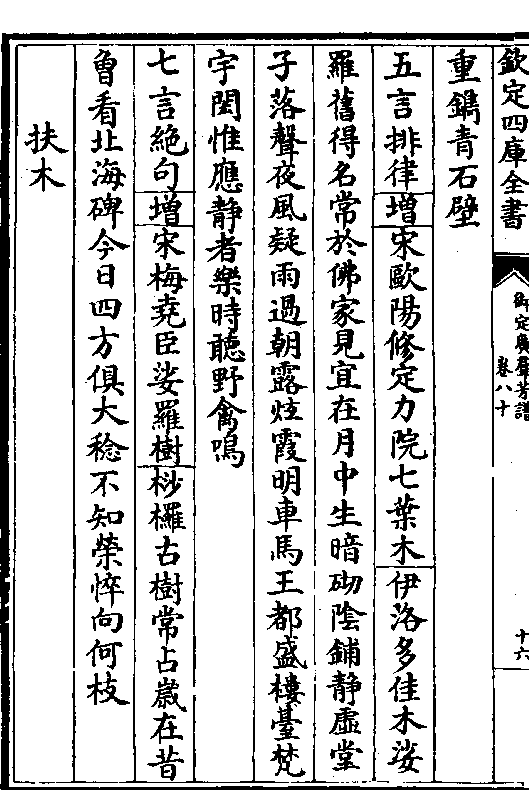 欽定四庫全書
御定廣羣芳譜
卷八十
十六
重鐫青石壁
五言排律增宋歐陽修定力院七葉木伊洛多佳木娑
羅舊得名常於佛家見宜在月中生暗砌陰鋪静虛堂
子落聲夜風疑雨過朝露炫霞明車馬王都盛樓臺梵
宇閎惟應静者樂時聽野禽鳴
七言絶句增宋梅堯臣娑羅樹桫欏古樹常占歲在昔
曾看北海碑今日四方俱大稔不知榮悴向何枝
扶木